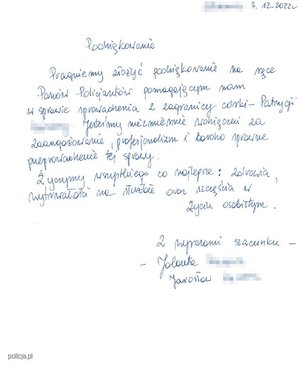 7.12.2022r
Podziękowanie
Pragniemy złożyć podziękowanie na ręce
Panów Policjantów pomagającym nam
w sprawie sprowadzenia z zagranicy córki - Patrycji
Jesteśmy niezmiernie wdzięczni za
zaangażowanie, profesjonalizm i bardzo sprawne
przeprowadzenie tej sprawy.
Życzymy wszystkiego co najlepsze: zdrowia,
wytrwałości na służbie oraz szczęścia w
życiu osobistym.
Z wyrazami szacunku -
- Jolanta
Jarosław
policja.pl